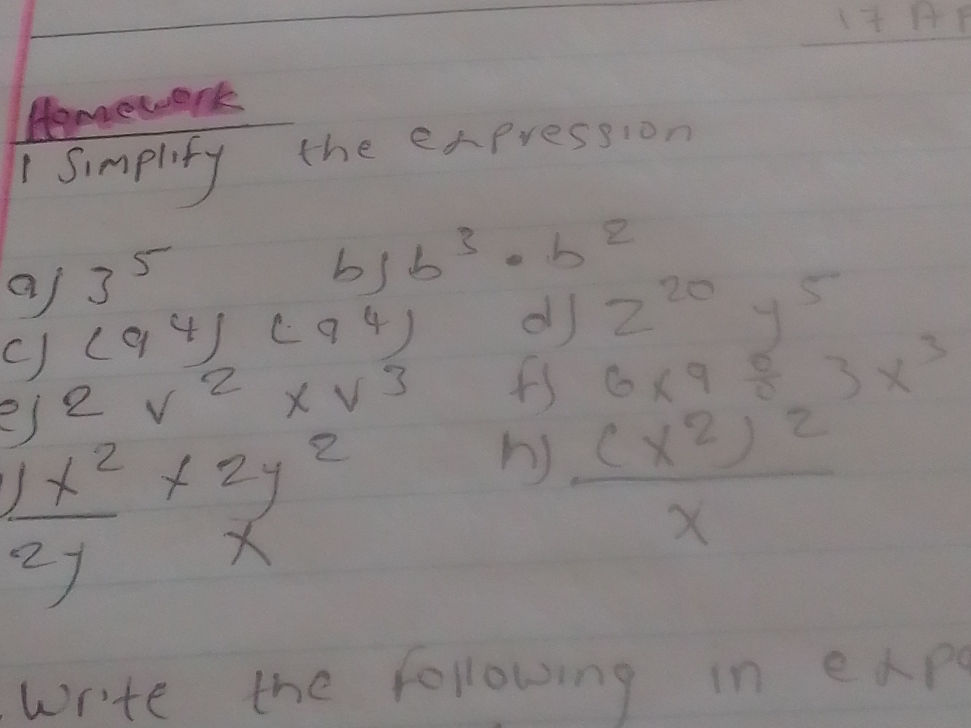 17 AP
Homework
1 Simplify the expression
a) 3⁵ b) b³ · b²
c) (a⁴) (a⁴) d) z²⁰ y⁵
e) 2 v² x v³ f) 6x9 ÷ 3x³
) x²/2y x 2y²/x h) (x²)²/x
Write the following in expo